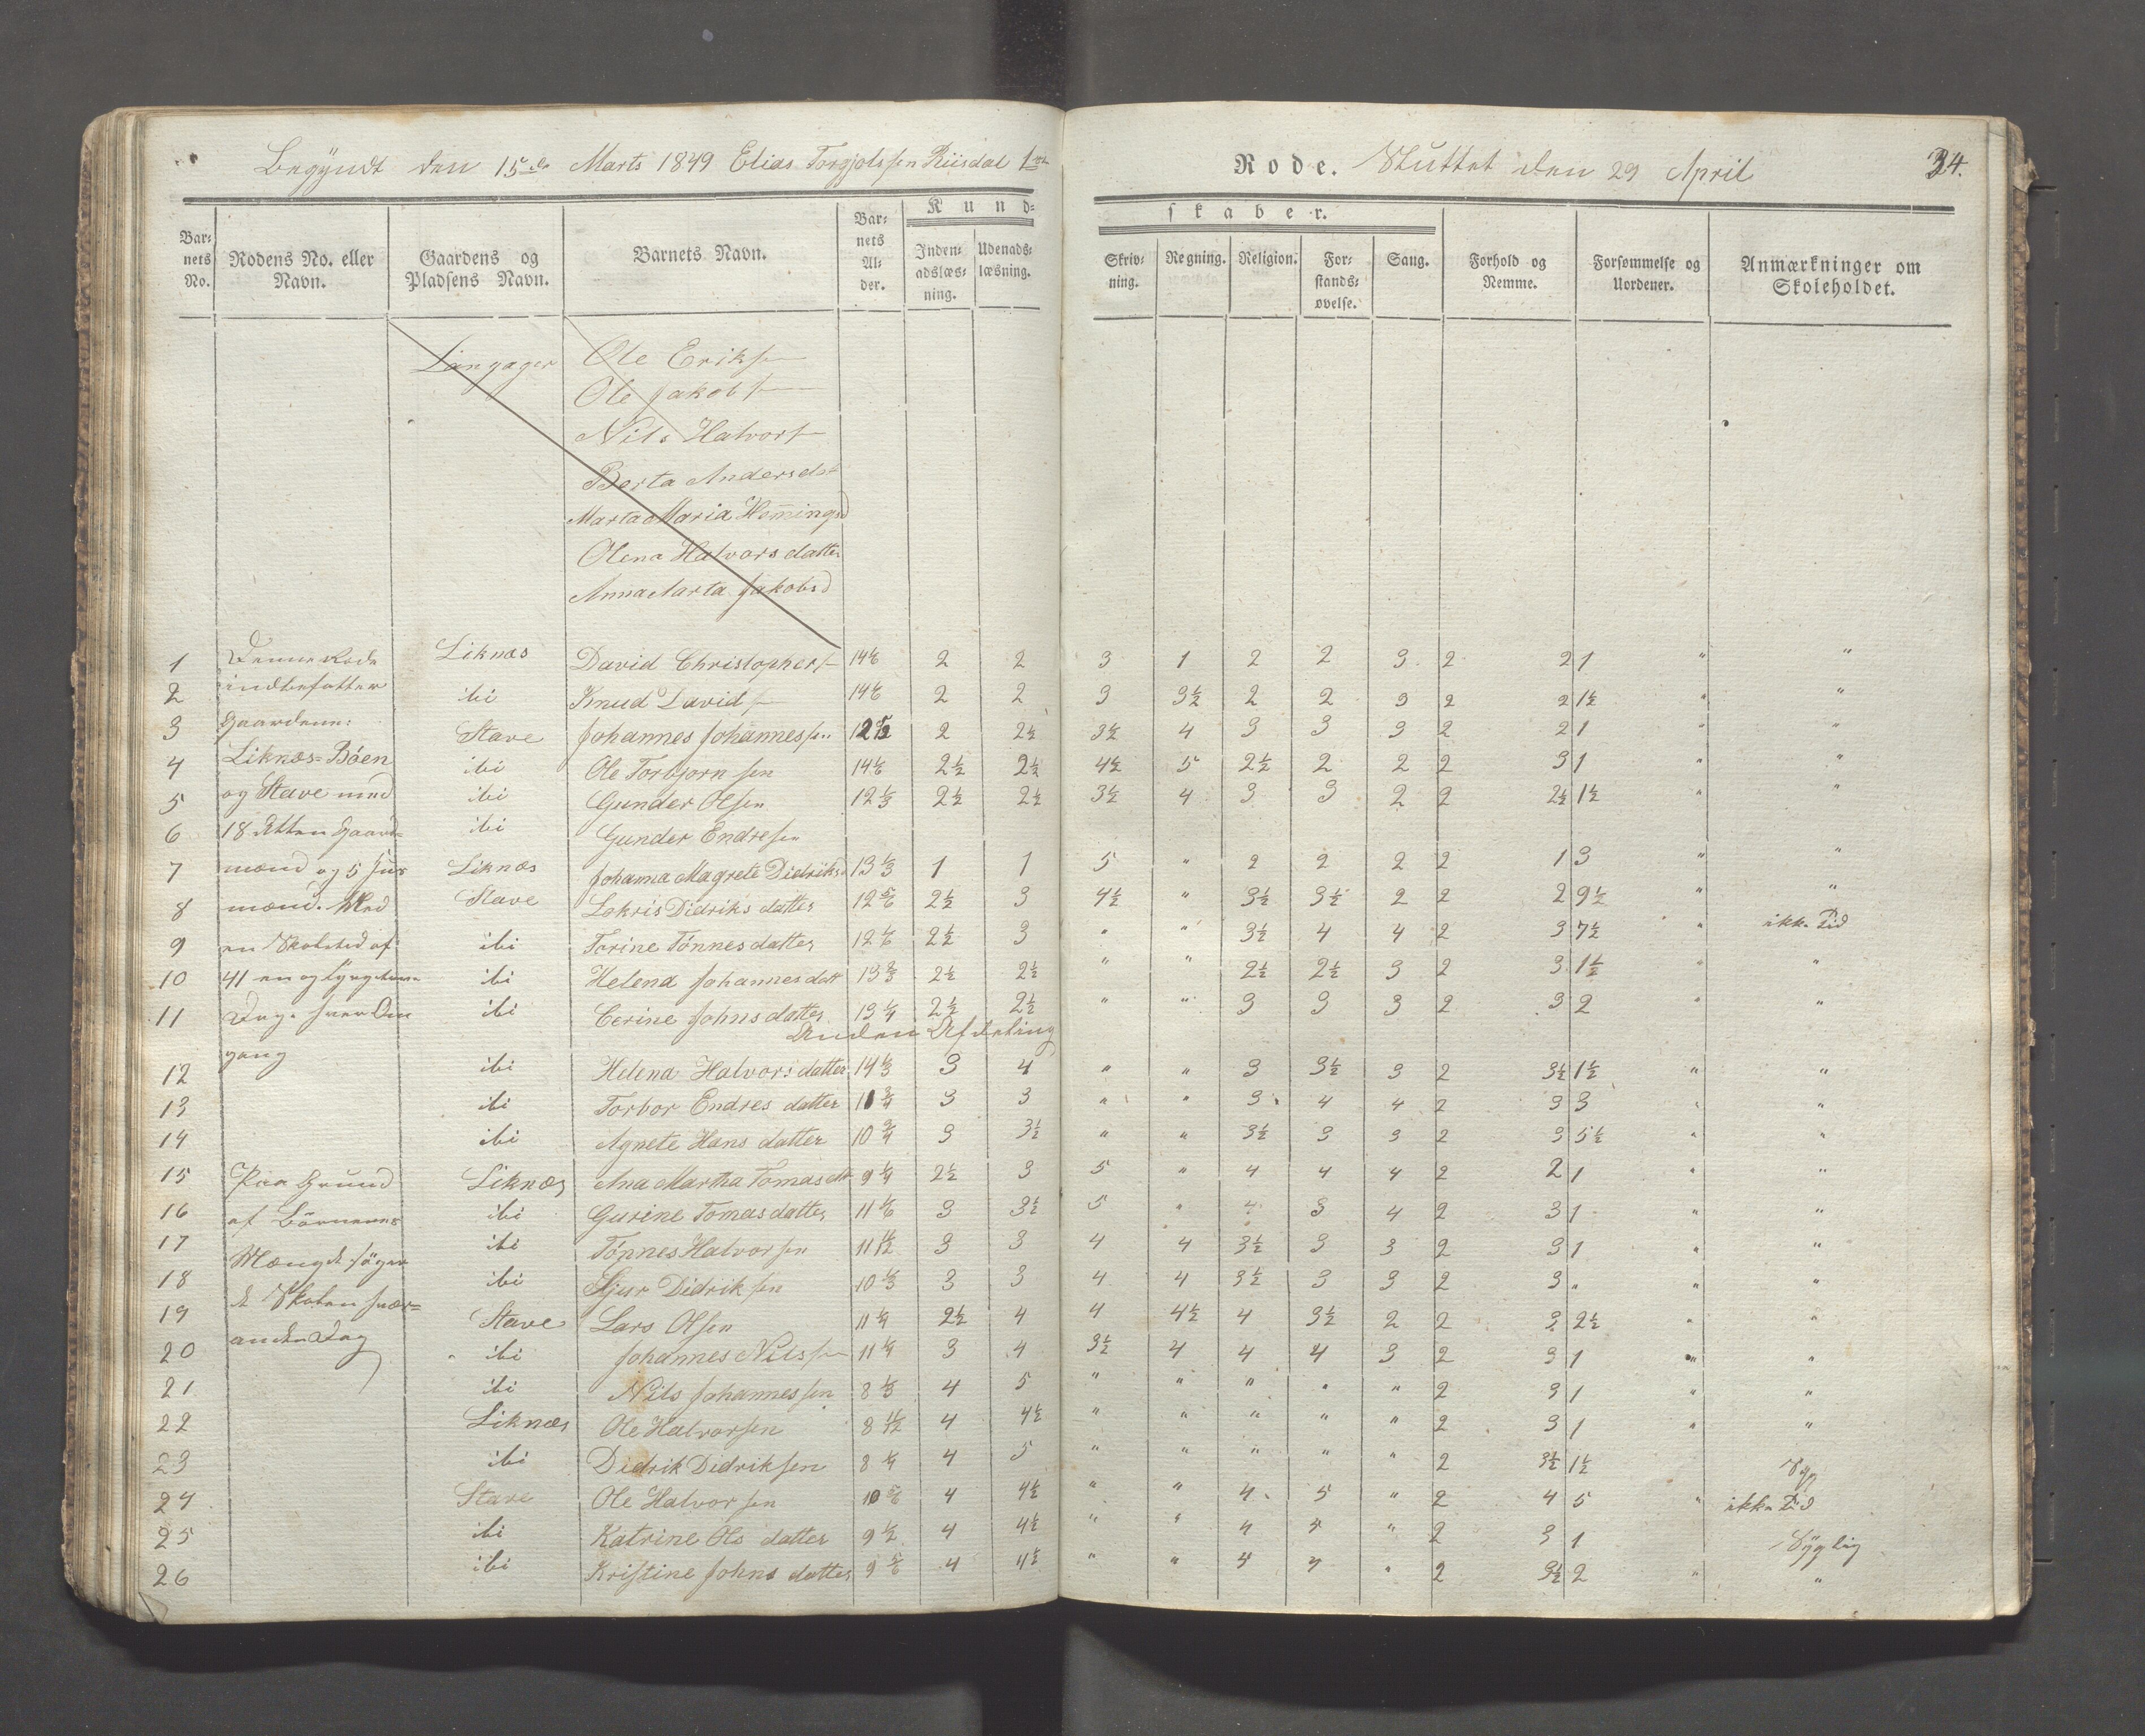 Begyndt den 15de Marts 1849 Elias Torgjolssen Riisdal 1ste Rode. Sluttet den 29 April 34.
Barnets No. Rodens No. eller Navn. Gaardens og Pladsens Navn. Barnets Navn. Barnets Alder. Kundskaber. Indenadslæsning. Udenadslæsning. Skrivning. Regning. Religion. Forstandsøvelse. Sang. Forhold og Nemme. Forsømmelse og Uordener. Anmærkninger om Skoleholdet.
Langager Ole Eriksen
Ole Jakobs
Nils Halvors
Berta Andersd
Marta Maria Hemingsd
Olena Halvorsdatter
Anna Marta Jakobsd
1 Denne Rode Liknæs David Christophers 14 1/6 2 2 3 1 2 2 3 2 2 1 " "
2 indbefatter ibi Knud Davids 14 1/6 2 2 3 3½ 2 2 3 2 2 1½ " "
3 Gaardene: Stave Johannes Johannessen 12 5/12 2 2½ 3½ 4 3 3 3 2 2 1 " "
4 Liknæs=Böen ibi Ole Torbjornsen 14 1/6 2½ 2½ 4½ 5 2½ 2 2 2 3 1 " "
5 og Stave med ibi Gunder Olsen 12 1/3 2½ 2½ 3½ 4 3 3 2 2 2½ 1½ " "
6 18 Atten Gaard= ibi Gunder Endresen
7 mænd og 5 Hus Liknæs Johanna Magrete Didriksd 13 1/3 1 1 5 " 2 2 2 2 1 3 " "
8 mænd. Med Stave Lokris Didriksdatter 12 5/6 2½ 3 4½ " 3½ 3½ 2 2 2 9½ " "
9 en Skoletid af ibi Torine Tönnesdatter 12 1/6 2½ 3 " " 3½ 4 4 2 3 7½ " ikke Tid
10 41 en og fyrgetyve ibi Helena Johannesdatt 13 2/3 2½ 2½ " " 2½ 2½ 3 2 3 1½ " "
11 Dage hver Om ibi Cerine Johnsdatter 13 1/4 2½ 2½ " " 3 3 3 2 3 2 " "
Anden Afdeling
gang
12 ibi Helena Halvorsdatter 14 1/3 3 4 " " 3 3½ 3 2 3½ 1½ " "
13 ibi Torbor Endresdatter 11 3/4 3 3 " " 3 4 4 2 3 3 " "
14 ibi Agnete Hansdatter 10 3/4 3 3½ " " 3½ 3 3 2 3 5½ " "
15 Paa Grund Liknæs Ana Martha Tomasdtt 9 1/4 2½ 3 5 " 4 4 4 2 2 1 " "
16 af Börnenes ibi Gurine Tomasdatter 11 1/6 3 3½ 5 " 4 3 4 2 3 1 " "
17 Mængde söger ibi Tönnes Halvorsen 11 11/12 3 3 4 4 3½ 3 3 2 3 1 " "
18 de Skolen hver= ibi Sjur Didriksen 10 1/3 3 3 4 4 3½ 3 3 2 3 " " "
19 anden Dag Stave Lars Olsen 11 1/4 2½ 4 4 4½ 4 3½ 2 2 3 2½ " "
20 ibi Johannes Nilss 11 1/4 3 4 3½ 4 4 4 3 2 3 1 " "
21 ibi Nils Johannessen 8 1/3 4 5 " " " " " 2 3 1 " "
22 Liknæs Ole Halvorsen 8 11/12 4 4½ " " " " " 2 3 1 " "
23 ibi Didrik Didriksen 8 1/4 4 5 " " " " " 2 3½ 1½ Syg
24 Stave Ole Halvorsen 10 5/6 4 4½ " " 4 5 " 2 4 5 " ikke Tid
25 ibi Katrine Olsdatter 9 1/2 4 4½ " " 4 4 " 2 3 1 Syglig
26 ibi Kristine Johnsdatter 9 5/6 4 4½ " " 4 4 " 2 3½ 2 " "